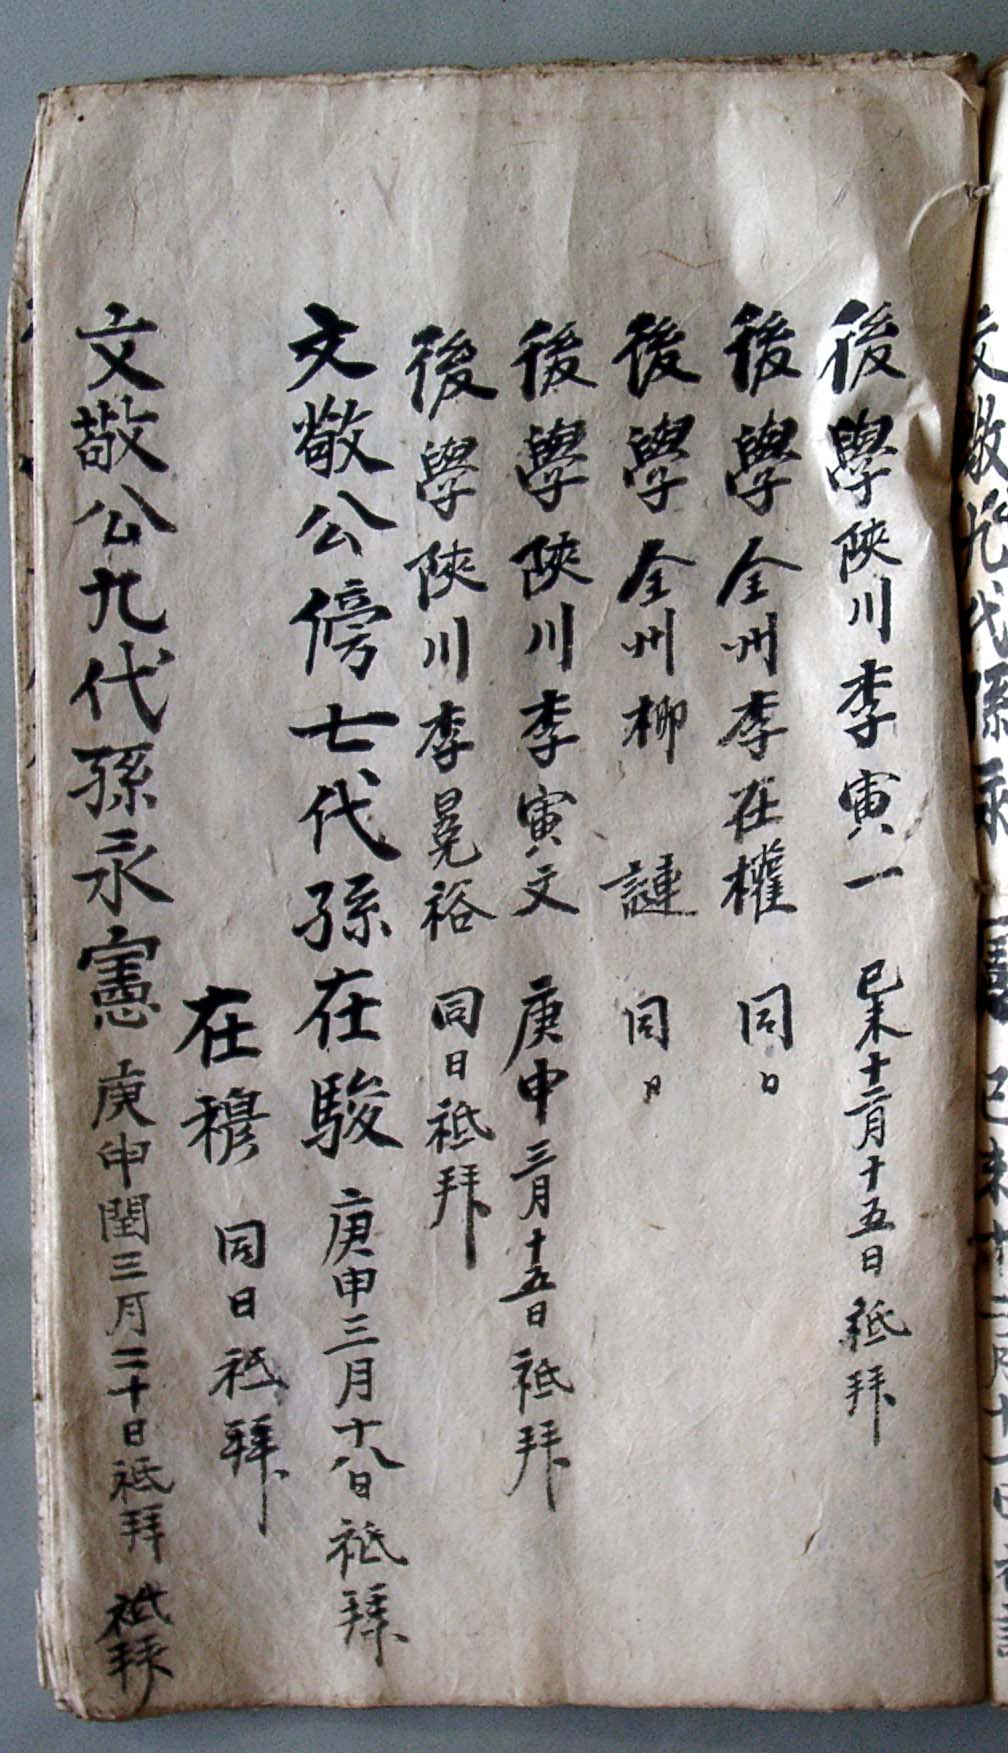 後學陜川李寅一 己未十二月十五日祗拜
後學全州李在權 同日
後學全州柳謰 同日
後學陜川李寅文 庚申三月十五日祗拜
後學陜川李晃裕 同日祗拜
文敬公傍七代孫在駿 庚申三月十八日祗拜
在穆 同日祗拜
文敬公九代孫永憲 庚申閏三月二十日祗拜 祗拜